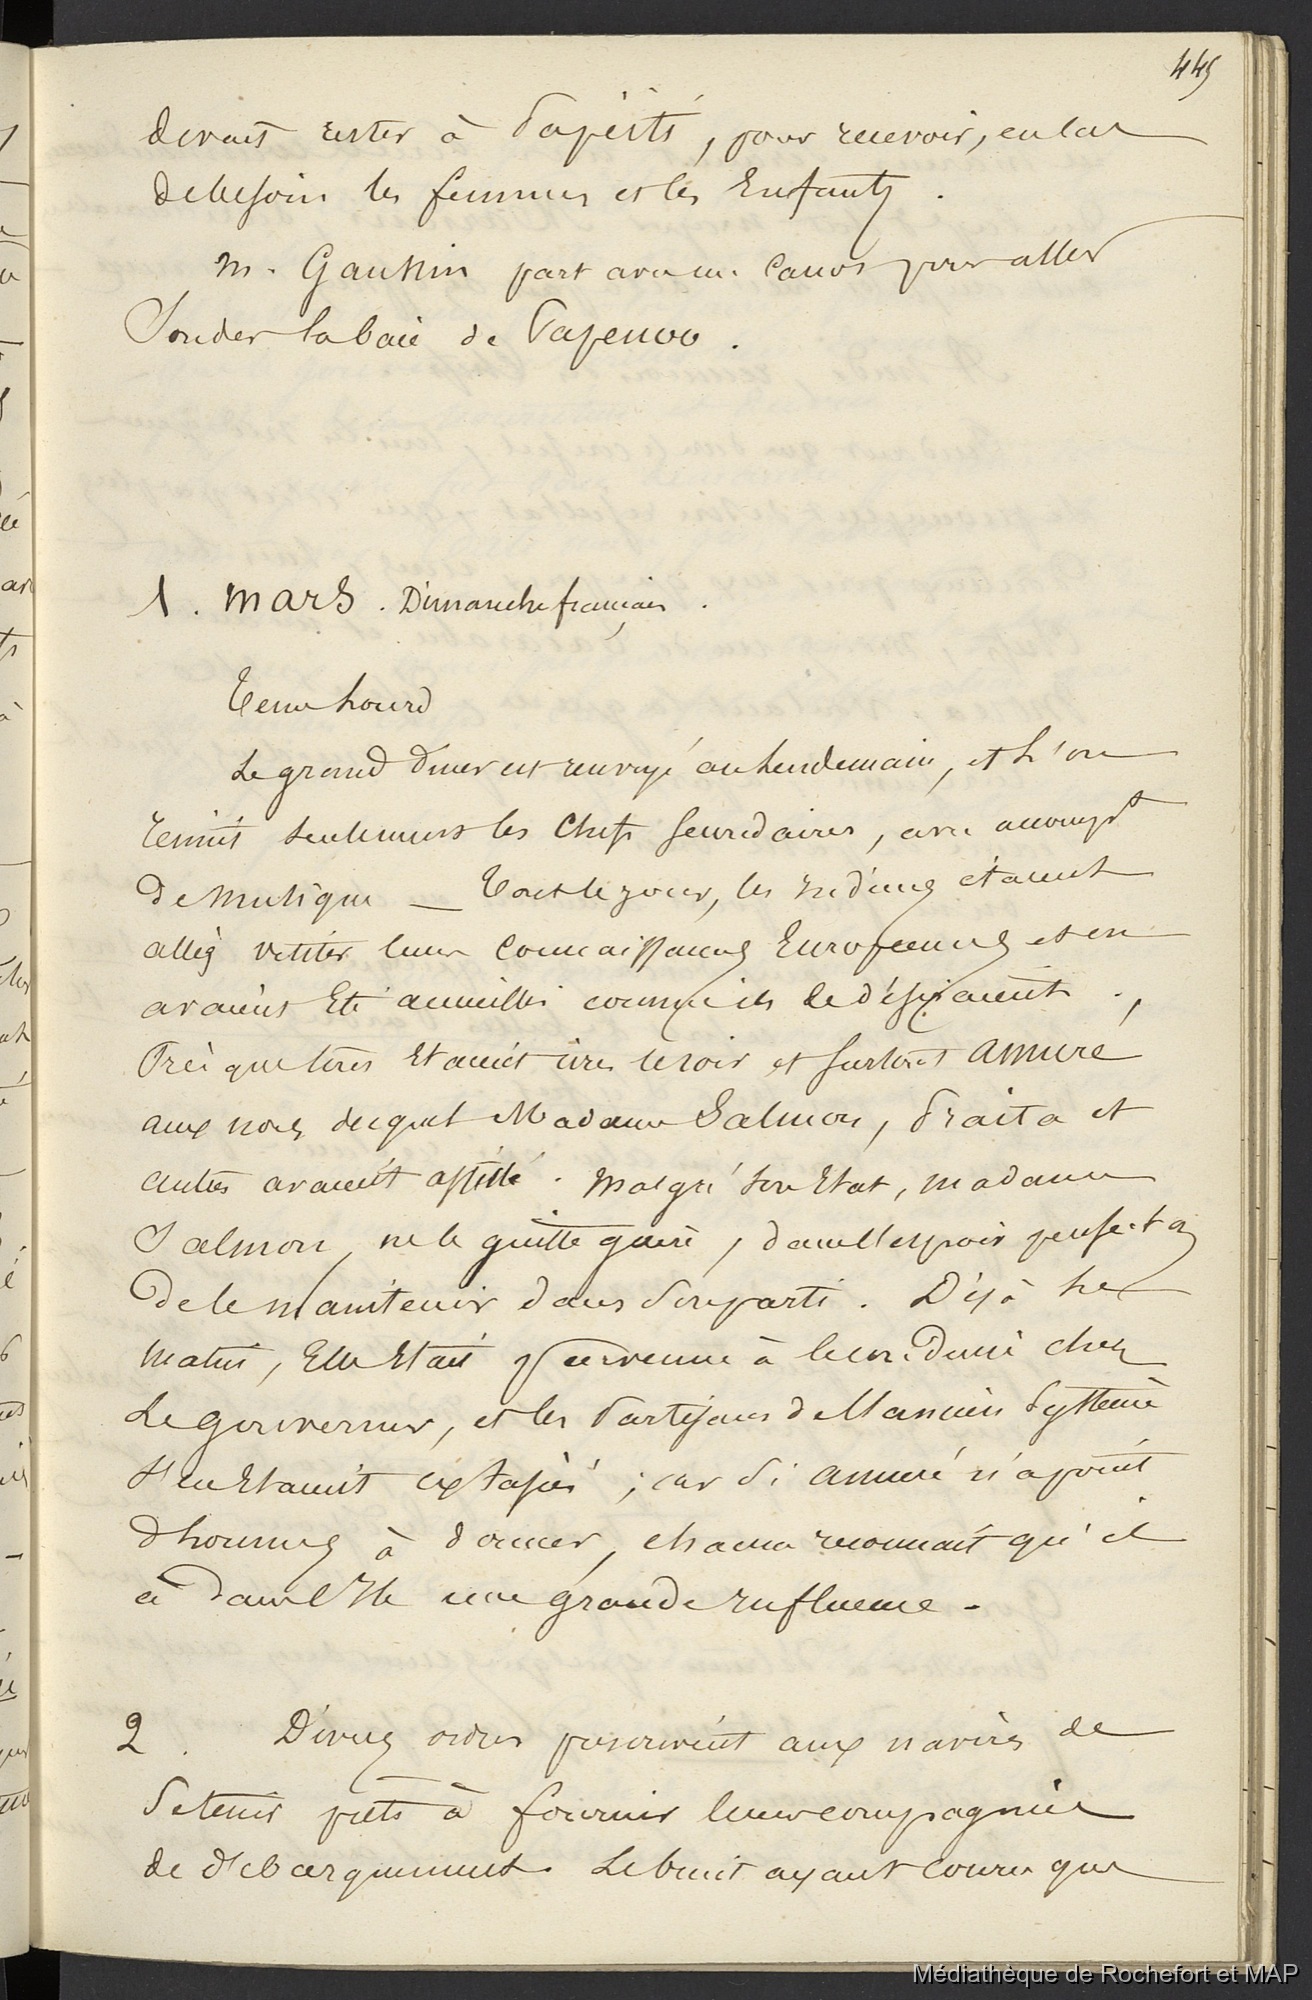 445
devait rester à Papéïti, pour recevoir, en cas
de besoin les femmes et les Enfants.
M. Gaussin part avec un canot pour aller
Sonder la baie de Papenoo.
1. mars. Dimanche français.
Tems lourd
Le grand diner est renvoyé au lendemain, et l'on
réunit seulement les Chefs secondaires, avec accompt
de musique — Tout le jour, les indiens étaient
allés visiter leurs connaissances Européennes et en
avaient Eté accueillis comme ils le désiraient.,
Presque tous Etaient ivres le soir et surtout Amuré
aux noces duquel Madame Salmon, Praita et
autres avaient assisté. Malgré son Etat, madame
Salmon, ne le quitte guère, dans l'espoir
de le maintenir dans son parti. Déjà le
matin, Elle Etait parvenue à le conduire chez
Le gouverneur, et les Partisans de l'ancien Système
s'en Etaient extasiés; car si Amuré n'a point
d'hommes à donner, chacun reconnait qu'il
a dans l'Ile une grande influence.
2. Divers ordres prescrivent aux navires de
se tenir prêts à fournir leurs compagnies
de débarquement. Le bruit ayant couru que
Médiathèque de Rochefort et MAP